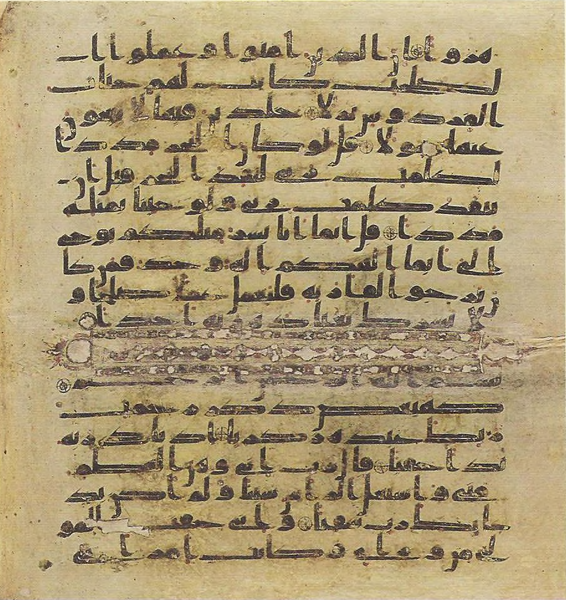 هزوا ان الذين امنوا و عملوا ا
لصلحت كانت لهم جنت
الفردوس نزلا خلدين فيها لا يبغون
عنها حولا قل لو كان البحر مددا
لكلمت ربي لنفد البحر قبل ان
تنفد كلمت ربي ولو جئنا بمثله
مددا قل انما انا بشر مثلكم يوحى
الي انما الهكم اله وحد فمن كا
ن يرجوا لقا ربه فليعمل عملا صلحا و
لا يشرك بعباده ربه احدا
بسم الله الرحمن الرحيم
كهيعص ذكر رحمت
ربك عبده زكريا اذ نادى ربه
ندا خفيا قال رب اني وهن العظم
مني واشتعل الراس شيبا ولم اكن بد
عايك رب شقيا واني خفت المو
لي من وراي وكانت امراتي